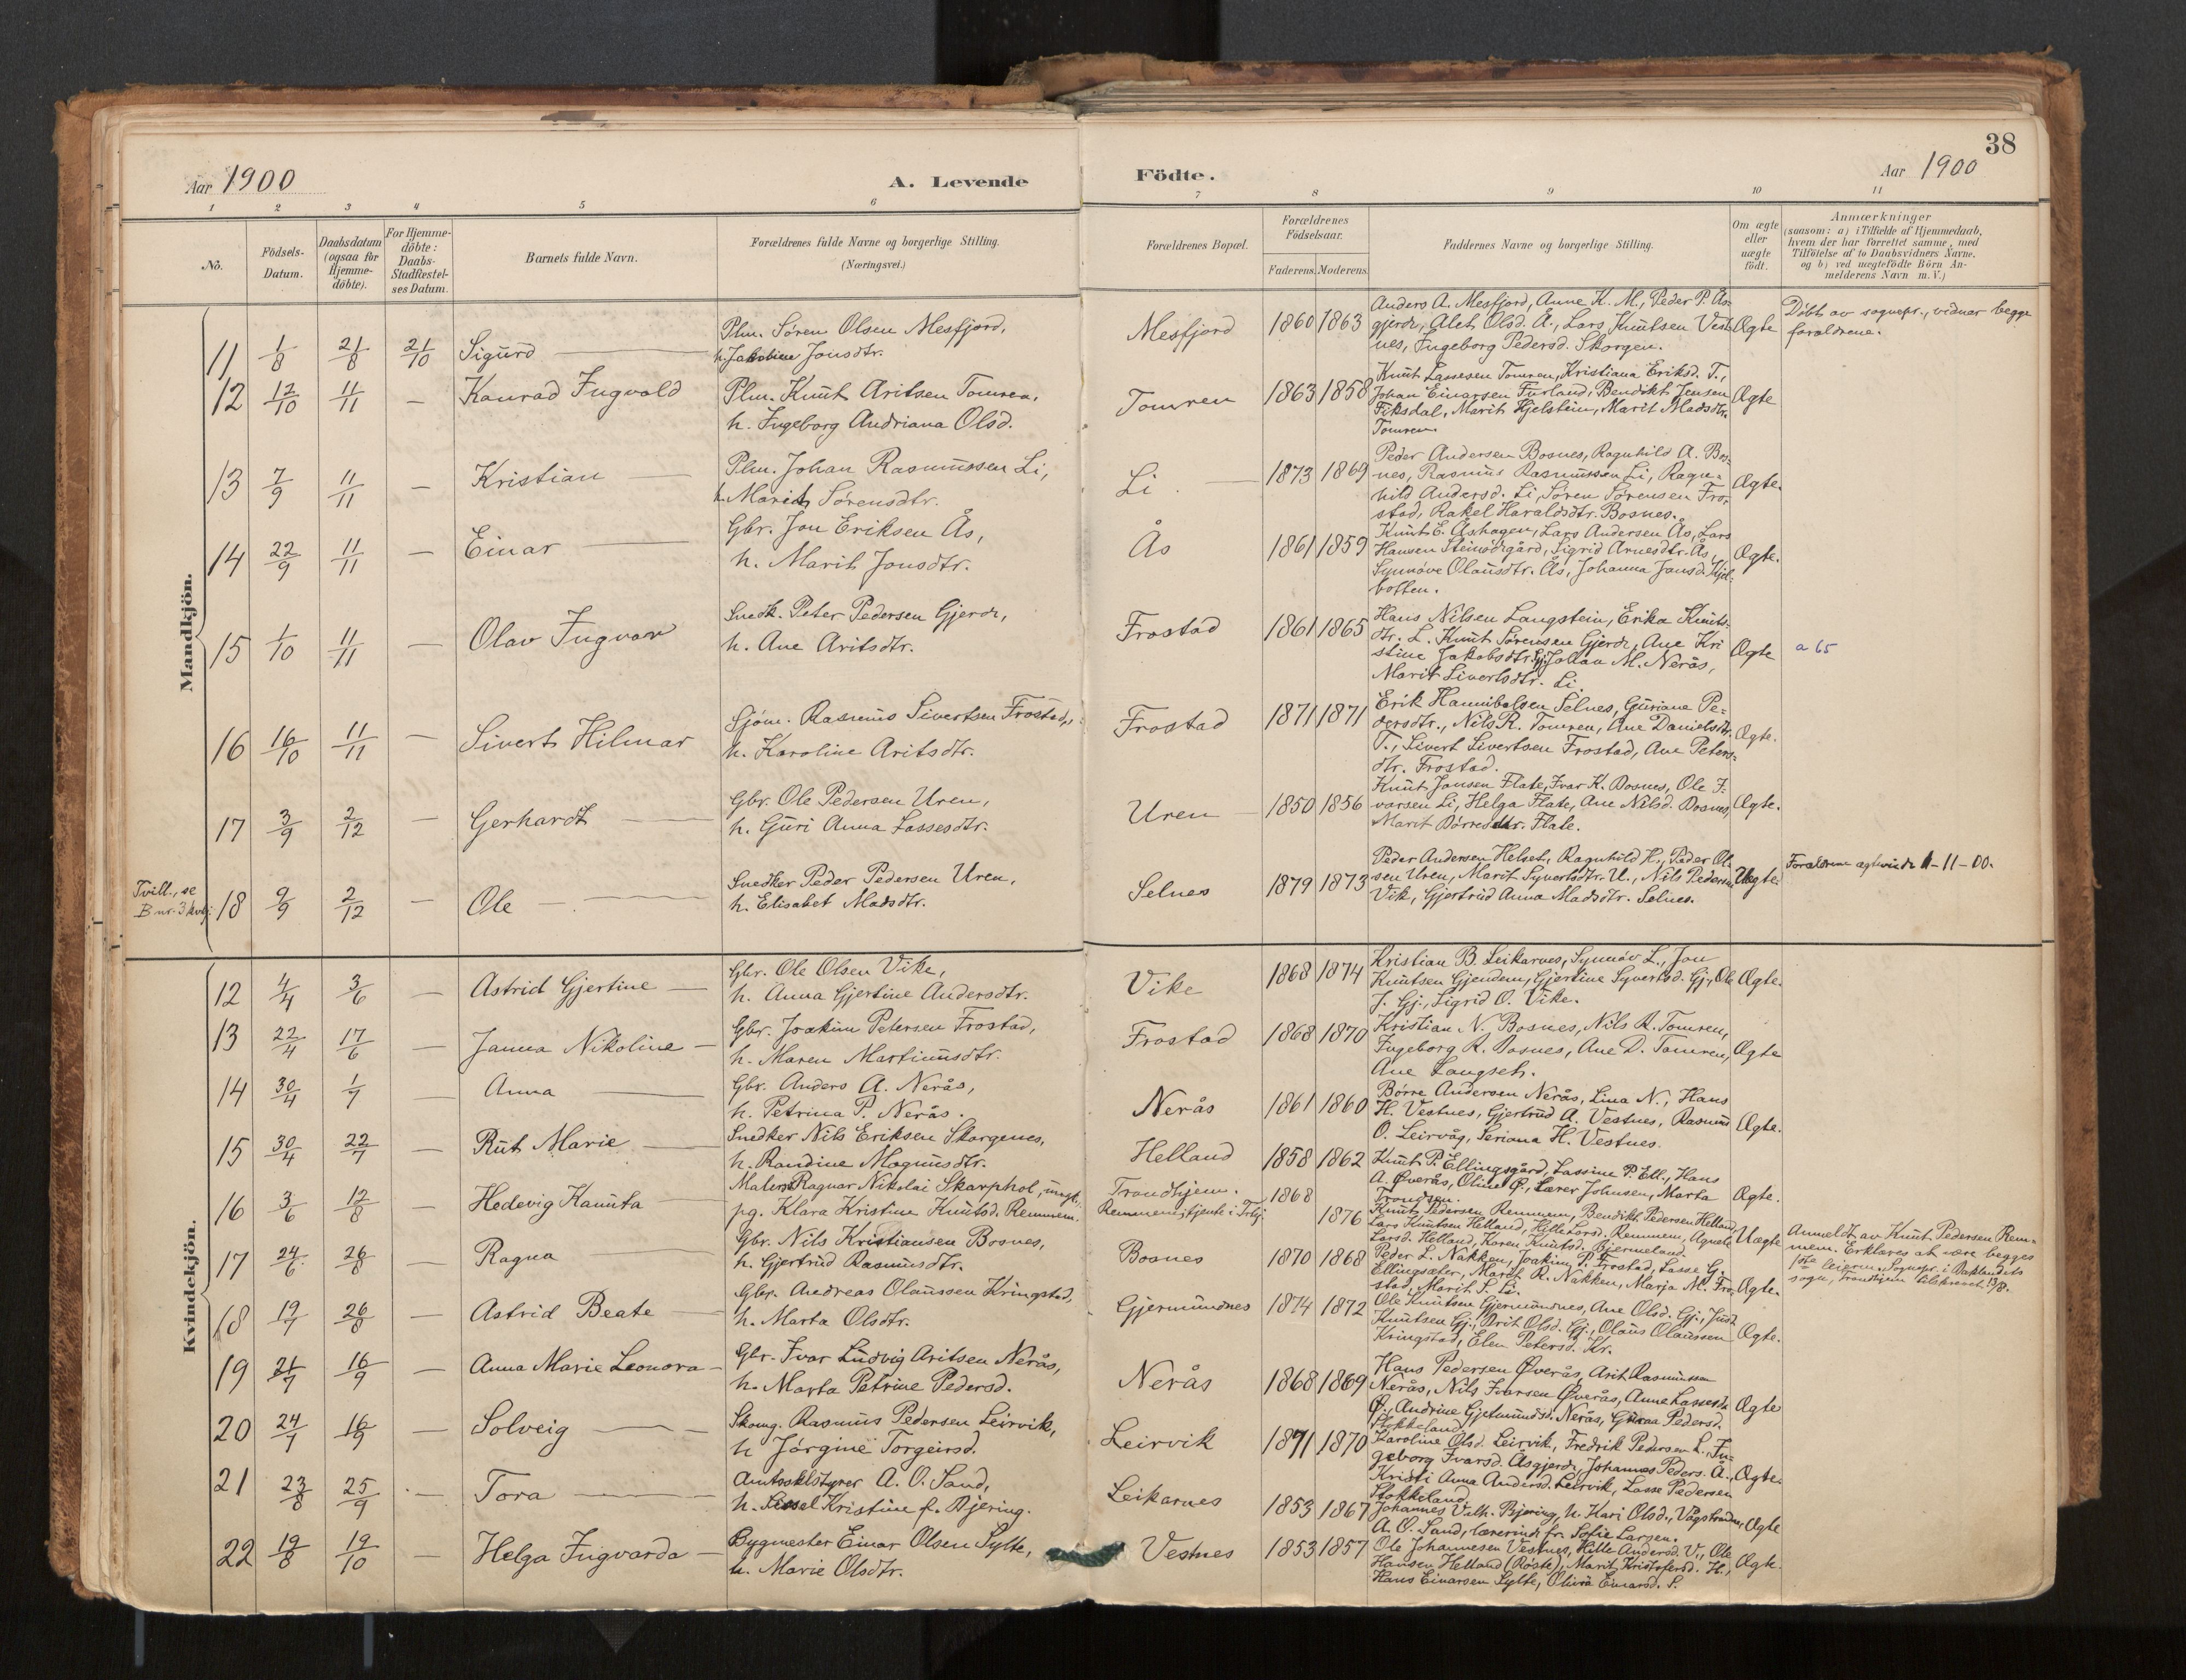 38
Aar 1900
A. Levende Födte.
Aar 1900
1 2 3 4 5 6 7 8 9 10 11
No.
Födsels-Datum.
Daabsdatum (ogsaa for Hjemme-döbte).
For Hjemme-döbte: Daabs-Stadfæstel-ses Datum.
Barnets fulde Navn.
Forældrenes fulde Navne og borgerlige Stilling.
(Næringsvei.)
Forældrenes Bopæl.
Forældrenes Födselsaar.
Faderens. Moderens.
Faddernes Navne og borgerlige Stilling.
Om ægte eller uægte födt.
Anmærkninger
(saasom: a) i Tilfælde af Hjemmedaab,
hvem der har forrettet samme, med
Tilföielse af to Daabsvidners Navne,
og b) ved uægtefödte Börn An-
melderens Navn m. V.)
Mandkjön.
11 1/8 21/8 21/10 Sigurd
Plm. Sören Olsen Mesfjord,
h. Jakobine Jonsdtr.
Mesfjord 1860 1863
Anders A. Mesfjord, Anne K. M., Peder P. Ås-
gjerdr, Alet Olsd. Å., Lars Knutsen Vest-
nes, Ingeborg Pedersd. Skorgen.
Ægte
Döbt av sognepr., vidner begge
forældrene.
12 12/10 11/11 — Konrad Ingvald
Plm. Knut Aritsen Tomren,
h. Ingeborg Andriana Olsd.
Tomren 1863 1858
Knut Lassesen Tomren, Kristiana Eriksd. T.,
Johan Einarsen Furland, Bendikt Jensen
Fiksdal, Marit Hjelstein, Marit Madsdtr.
Tomren.
Ægte
13 7/9 11/11 — Kristian
Plm. Johan Rasmussen Li,
h. Marith Sörensdtr.
Li. 1873 1869
Peder Andersen Bosnes, Ragnhild A. Bos-
nes, Rasmus Rasmussen Li, Ragn-
hild Andersd. Li, Sören Sörensen Fro-
stad, Rakel Haraldsdtr. Bosnes.
Ægte.
14 22/9 11/11 — Einar
Gbr. Jon Eriksen Ås,
h. Marit Jonsdtr.
Ås 1861 1859
Knut E. Åshagen, Lars Andersen Ås, Lars
Hansen Steinsörgård, Sigrid Arnesdtr. Ås,
Synnöve Olausdtr. Ås, Johanna Jonsd. Kjel-
botten.
Ægte.
15 1/10 11/11 — Olav Ingvar
Snedk. Peter Pedersen Gjerdr,
h. Ane Aritsdtr.
Frostad 1861 1865
Hans Nilsen Langstein, Erika Knuts-
dtr. L. Knut Sörensen Gjerdr, Ane Kri
stine Jakobsdtr. Gj. Johan M. Nerås,
Marit Sivertsdtr. Li
Ægte
a 65
16 16/10 11/11 — Sivert Hilmar
Sjöm. Rasmus Sivertsen Frostad,
h. Karoline Aritsdtr.
Frostad 1871 1871
Erik Hannibalsen Selnes, Guriane Pe-
dersdtr., Nils R. Tomren, Ane Danielsdtr.
T., Sivert Sivertsen Frostad, Ane Peters-
dtr. Frostad.
Ægte.
17 3/9 2/12 — Gerhardt
Gbr. Ole Pedersen Uren,
h. Guri Anna Lassesdtr.
Uren 1850 1856
Knut Jonsen Flate, Ivar K. Bosnes, Ole I-
varsen Li, Helga Flate, Ane Nilsd. Bosnes,
Marit Börresdtr. Flate.
Ægte.
Tvill., se
B nr. 3 kvkj.
18 9/9 2/12 — Ole
Snedker Peder Pedersen Uren,
h. Elisabet Madsdtr.
Selnes 1879 1873
Peder Andersen Helset, Ragnhild H., Peder Ol-
sen Uren, Marit Syvertsdtr. U., Nils Pedersen
Vik, Gjertrud Anna Madsdtr. Selnes.
Uægte.
Forældrene ægtevidr 11-11-00.
Kvindekjön.
12 4/4 3/6 — Astrid Gjertine
Gbr. Ole Olsen Vike,
h. Anna Gjertine Andersdtr.
Vike 1868 1874
Kristian B. Leikarnes, Synnöv L., Jon
Knutsen Gjendem, Gjertine Syvertsd. Gj., Ole
J. Gj., Sigrid O. Vike.
Ægte.
13 22/4 17/6 — Janna Nikoline
Gbr. Joakim Petersen Frostad,
h. Maren Martinusdtr.
Frostad 1868 1870
Kristian N. Bosnes, Nils R. Tomren,
Ingeborg R. Bosnes, Ane D. Tomren,
Ane Langset.
Ægte
14 30/4 1/7 — Anna
Gbr. Anders A. Nerås,
h. Petrina P. Nerås.
Nerås 1861 1860
Börre Andersen Nerås, Lina N., Hans
H. Vestnes, Gjertrud A. Vestnes, Rasmus
O. Leirvåg, Seriana H. Vestnes.
Ægte.
15 30/4 22/7 — Rut Marie
Snedker Nils Eriksen Skorgenes,
h. Randine Magnusdtr.
Helland 1858 1862
Knut P. Ellingsgård, Lassine P. Ell., Hans
A. Överås, Oline Ö., Lærer Johnsen, Marta
Trondsen.
Ægte.
16 3/6 12/8 — Hedevig Kanuta
Maler Ragnar Nikolai Skarphol, ungk.,
pg. Klara Kristine Knutsd. Remmem.
Trondhjem. 1868
Remmem, tjente i Trhj. 1876
Knut Pedersen Remmem, Bendikt Pedersen Helland,
Lars Knutsen Helland, Hille Larsd. Remmem, Agnete
Larsd. Helland, Karen Knutsd. Bjermeland.
Uægte
Anmeldt av Knut Pedersen Rem-
mem. Erklæres at være begges
1ste leierm. Sognepr. i Baklandets
sogn, Trondhjem tilskrevet 13/8.
17 24/6 26/8 — Ragna
Gbr. Nils Kristiansen Bosnes,
h. Gjertrud Rasmusdtr.
Bosnes 1870 1868
Peder L. Nakken, Joakim P. Frostad, Lasse G.
Ellingsæter, Mardt R. Nakken, Marja M. Fro-
stad, Marit S. Li.
Ægte.
18 19/7 26/8 — Astrid Beate
Gbr. Andreas Olaussen Kringstad,
h. Marta Olsdtr.
Gjermundnes 1874 1872
Ole Knutsen Gjermundnes, Ane Olsd. Gj., Just
Knutsen Gj., Brit Olsd. Gj., Olaus Olaussen
Kringstad, Elen Petersd. Kr.
Ægte.
19 21/7 16/9 — Anna Marie Leonora
Gbr. Ivar Ludvig Aritsen Nerås,
h. Marta Petrine Pedersd.
Nerås 1868 1869
Hans Pedersen Överås, Arit Rasmussen
Nerås, Nils Ivarsen Överås, Anne Lassesdtr
Ö., Andrine Gjetmundsd. Nerås, Pedersd.
Stokkeland
Ægte
20 24/7 16/9 — Solveig
Skomg. Rasmus Pedersen Leirvik,
h Jörgine Torgeirsd.
Leirvik 1871 1870
Karoline Olsd. Leirvik, Fredrik Pedersen L., In-
geborg Ivarsd. Åsgjerdr, Johannes Peders. Å.,
Kristi Anna Andersd. Leirvik, Lasse Pedersen
Stokkeland.
Ægte.
21 23/8 25/9 — Tora
Amtsskolstyrer A. O. Sand,
h. Sissel Kristine f. Bjering.
Leikarnes 1853 1867
Johannes Valh. Bjering, h. Kari Olsd., Vågstranden,
A. O. Sand, lærerinde fr. Sofie Larsen.
Ægte
22 19/8 19/10 — Helga Ingvarda
Bygmester Einar Olsen Sylte,
h. Marie Olsdtr.
Vestnes 1853 1857
Ole Johannesen Vestnes, Hille Andersd. V., Ole
Hansen Helland (Röste), Marit Kristofersd. H.,
Hans Einarsen Sylte, Olivia Einarsd. S.
Ægte.